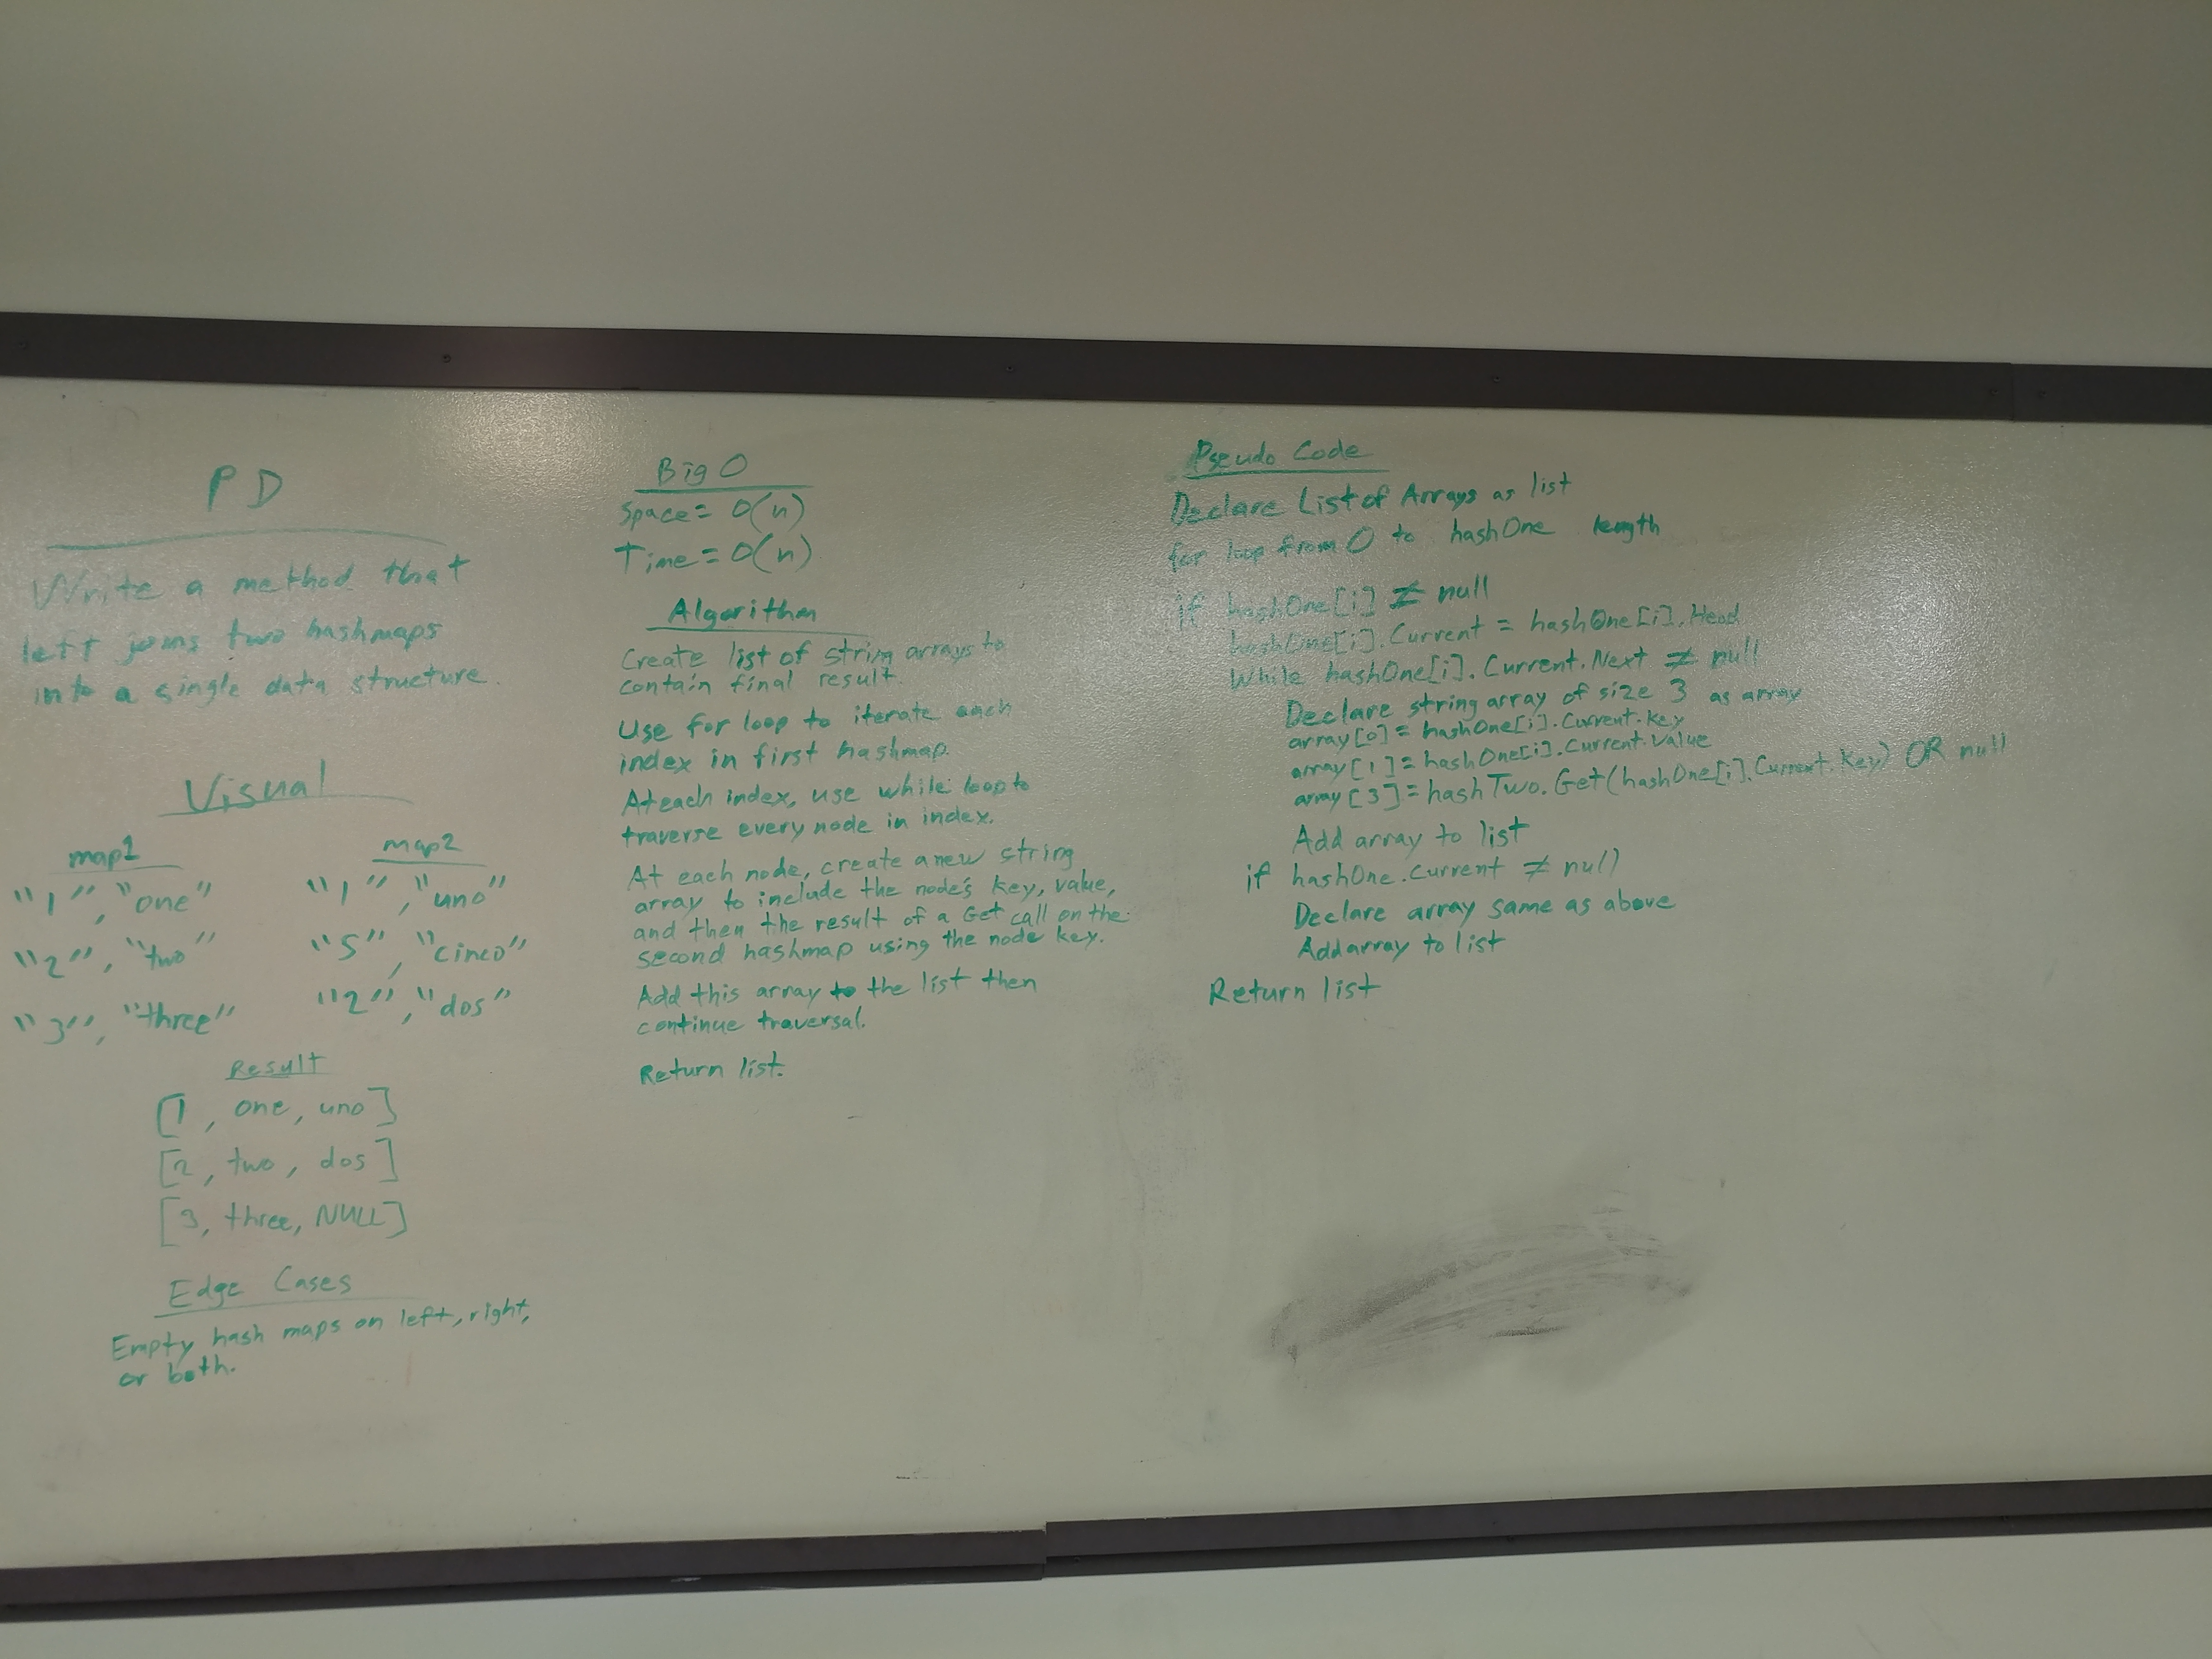 PD
Write a method that
left joins two hashmaps
into a single data structure.
Visual
map1
"1", "one"
"2", "two"
"3", "three"
map2
"1", "uno"
"5", "cinco"
"2", "dos"
Result
[1, one, uno]
[2, two, dos]
[3, three, NULL]
Edge Cases
Empty hash maps on left, right,
or both.
Big O
Space = O(n)
Time = O(n)
Algorithm
Create list of string arrays to
contain final result.
Use for loop to iterate each
index in first hashmap.
At each index, use while loop to
traverse every node in index.
At each node, create a new string
array to include the node's key, value,
and then the result of a Get call on the
second hashmap using the node key.
Add this array to the list then
continue traversal.
Return list.
Pseudo Code
Declare List of Arrays as list
for loop from 0 to hashOne length
if hashOne[i] ≠ null
hashOne[i].Current = hashOne[i].Head
While hashOne[i].Current.Next ≠ null
Declare string array of size 3 as array
array[0] = hashOne[i].Current.Key
array[1] = hashOne[i].Current.Value
array[3] = hashTwo.Get(hashOne[i].Current.Key) OR null
Add array to list
if hashOne.Current ≠ null
Declare array same as above
Add array to list
Return list